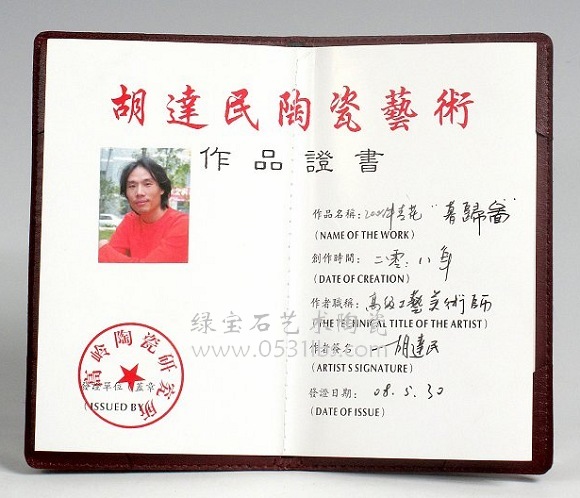 胡達民陶瓷藝術
作品證書
作品名稱: 200件青花 "暮歸圖"
(NAME OF THE WORK)
創作時間: 二零.八年
(DATE OF CREATION)
作者職稱: 高级工藝美術師
(THE TECHNICAL TITLE OF THE ARTIST)
作者簽名: 胡達民
(ARTIST S SIGNATURE)
發證日期: 08.5.30
(DATE OF ISSUE)
高岭陶瓷研究所
發證單位(蓋章)
(ISSUED BY)
绿宝石艺术陶瓷